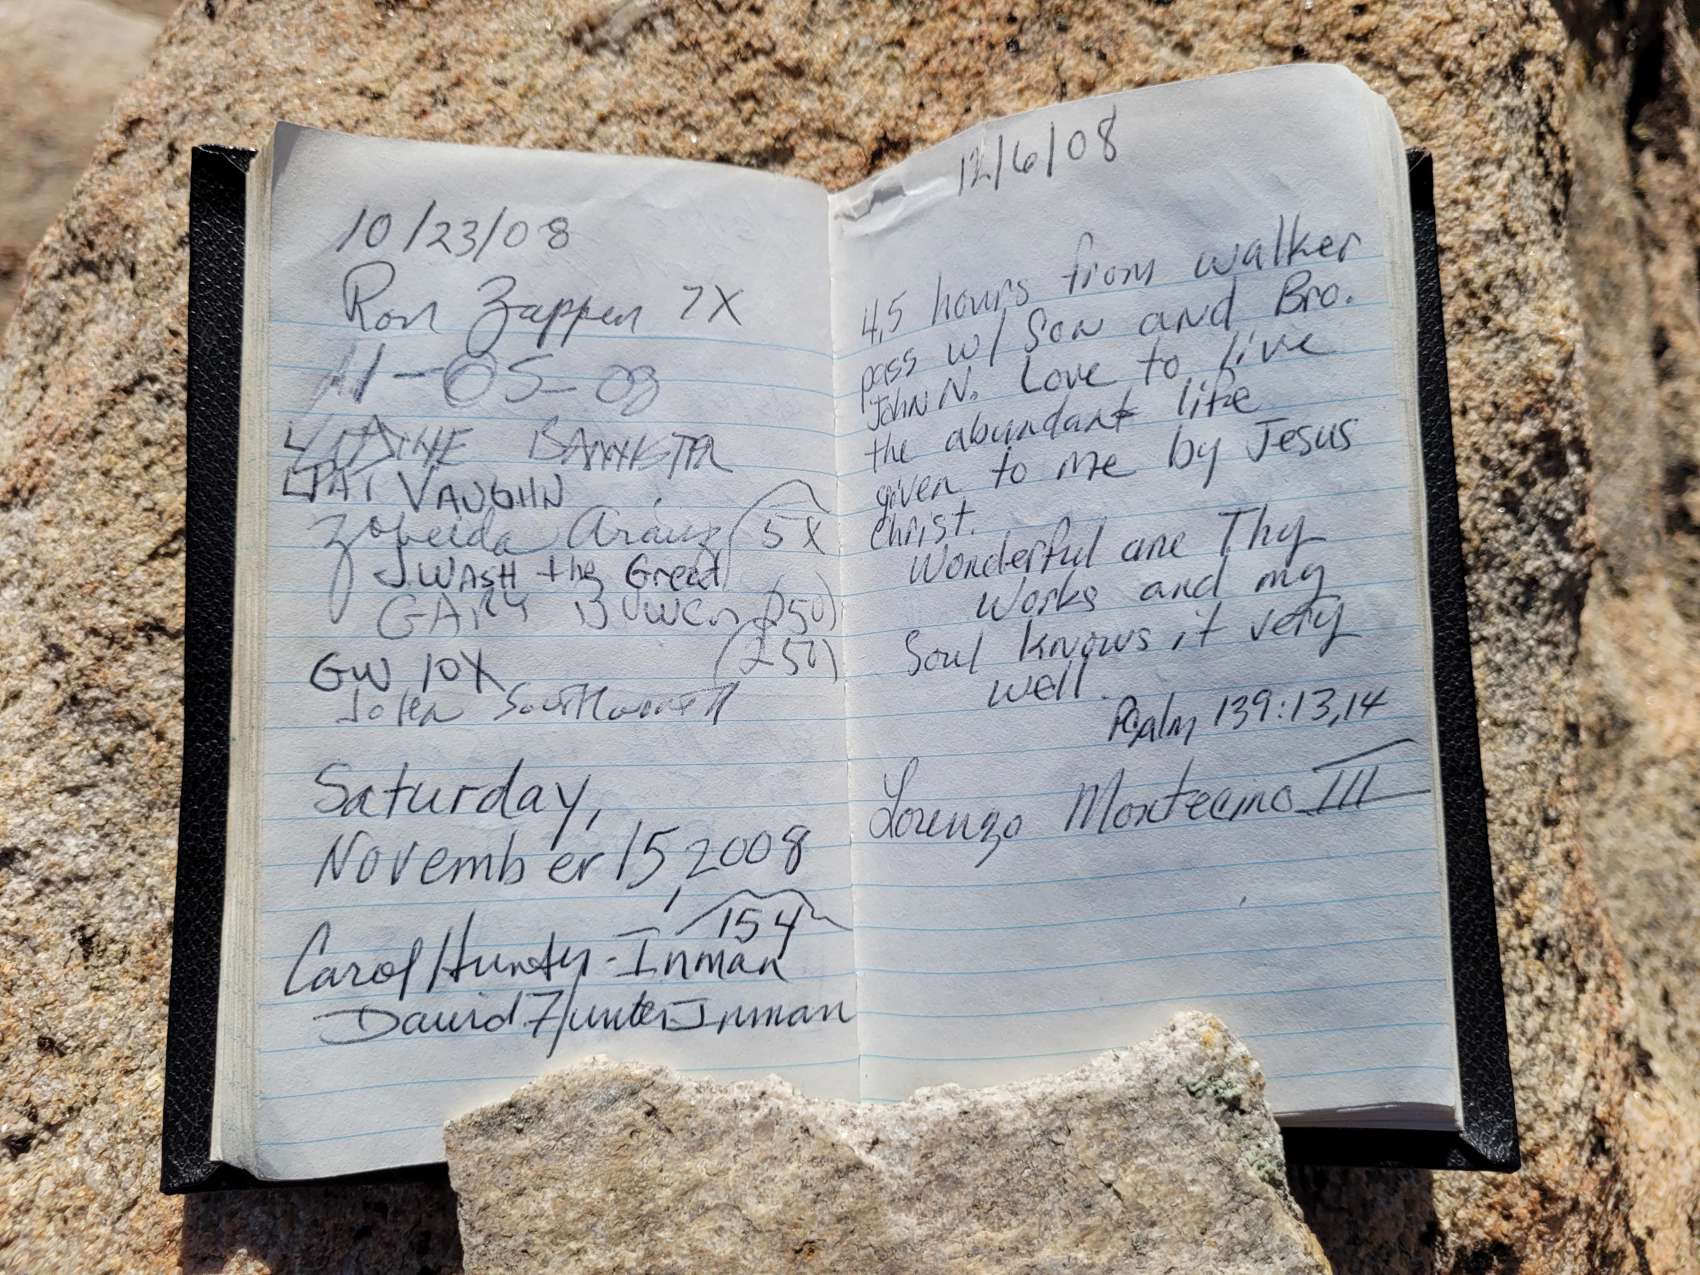 10/23/08
Ron Zappen 7X
11-05-08
BANNISTER
VAUGHN
Zobeida Arauz 5X
JWASH the Great
GARY BOWEN (250)
GW 10X (250)
John
Saturday,
November 15, 2008
154
Carol Hunter-Inman
David Hunter Inman
12/6/08
4,5 hours from walker
pass w/ Son and Bro.
John N. Love to live
the abundant life
given to me by Jesus
Christ.
Wonderful are Thy
Works and my
Soul knows it very
well.
Psalm 139:13,14
Lorenzo Montecino III